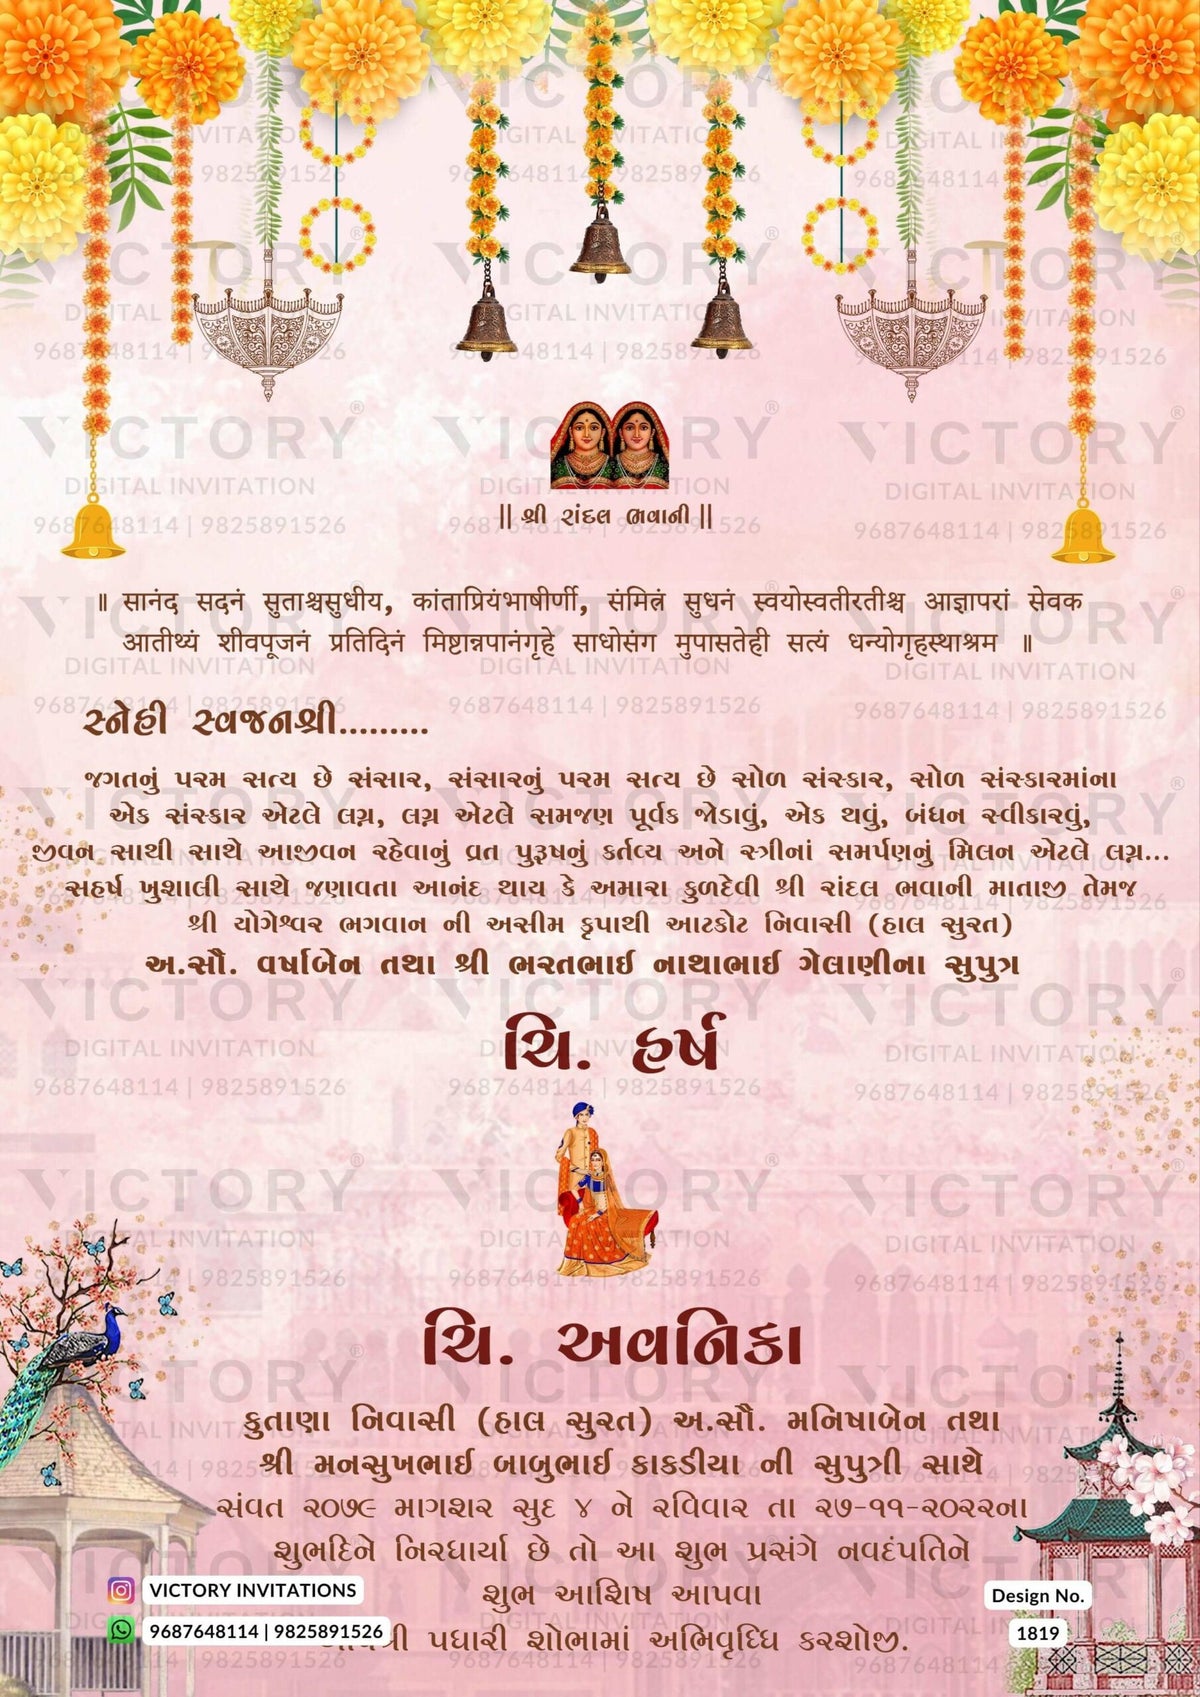 || શ્રી રાંદલ ભવાની ||
॥ सानंद सदनं सुताश्चसुधीय, कांताप्रियंभाषीर्णी, संमित्रं सुधनं स्वयोस्वतीरतीश्च आज्ञापरां सेवक
आतीथ्यं शीवपूजनं प्रतिदिनं मिष्टान्नपानंगृहे साधोसंग मुपासतेही सत्यं धन्योगृहस्थाश्रम ॥
સ્નેહી સ્વજનશ્રી.........
જગતનું પરમ સત્ય છે સંસાર, સંસારનું પરમ સત્ય છે સોળ સંસ્કાર, સોળ સંસ્કારમાંના
એક સંસ્કાર એટલે લગ્ન, લગ્ન એટલે સમજણ પૂર્વક જોડાવું, એક થવું, બંધન સ્વીકારવું,
જીવન સાથી સાથે આજીવન રહેવાનું વ્રત પુરૂષનું કર્તવ્ય અને સ્ત્રીનાં સમર્પણનું મિલન એટલે લગ્ન...
સહર્ષ ખુશાલી સાથે જણાવતા આનંદ થાય કે અમારા કુળદેવી શ્રી રાંદલ ભવાની માતાજી તેમજ
શ્રી યોગેશ્વર ભગવાન ની અસીમ કૃપાથી આટકોટ નિવાસી (હાલ સુરત)
અ.સૌ. વર્ષાબેન તથા શ્રી ભરતભાઈ નાથાભાઈ ગેલાણીના સુપુત્ર
ચિ. હર્ષ
ચિ. અવનિકા
કુતાણા નિવાસી (હાલ સુરત) અ.સૌ. મનિષાબેન તથા
શ્રી મનસુખભાઈ બાબુભાઈ કાકડીયા ની સુપુત્રી સાથે
સંવત ૨૦૭૯ માગશર સુદ ૪ ને રવિવાર તા ૨૭-૧૧-૨૦૨૨ના
શુભદિને નિરધાર્યા છે તો આ શુભ પ્રસંગે નવદંપતિને
શુભ આશિષ આપવા
પધારી શોભામાં અભિવૃધ્ધિ કરશોજી.
VICTORY INVITATIONS
9687648114 | 9825891526
Design No.
1819
VICTORY®
DIGITAL INVITATION
9687648114 | 9825891526